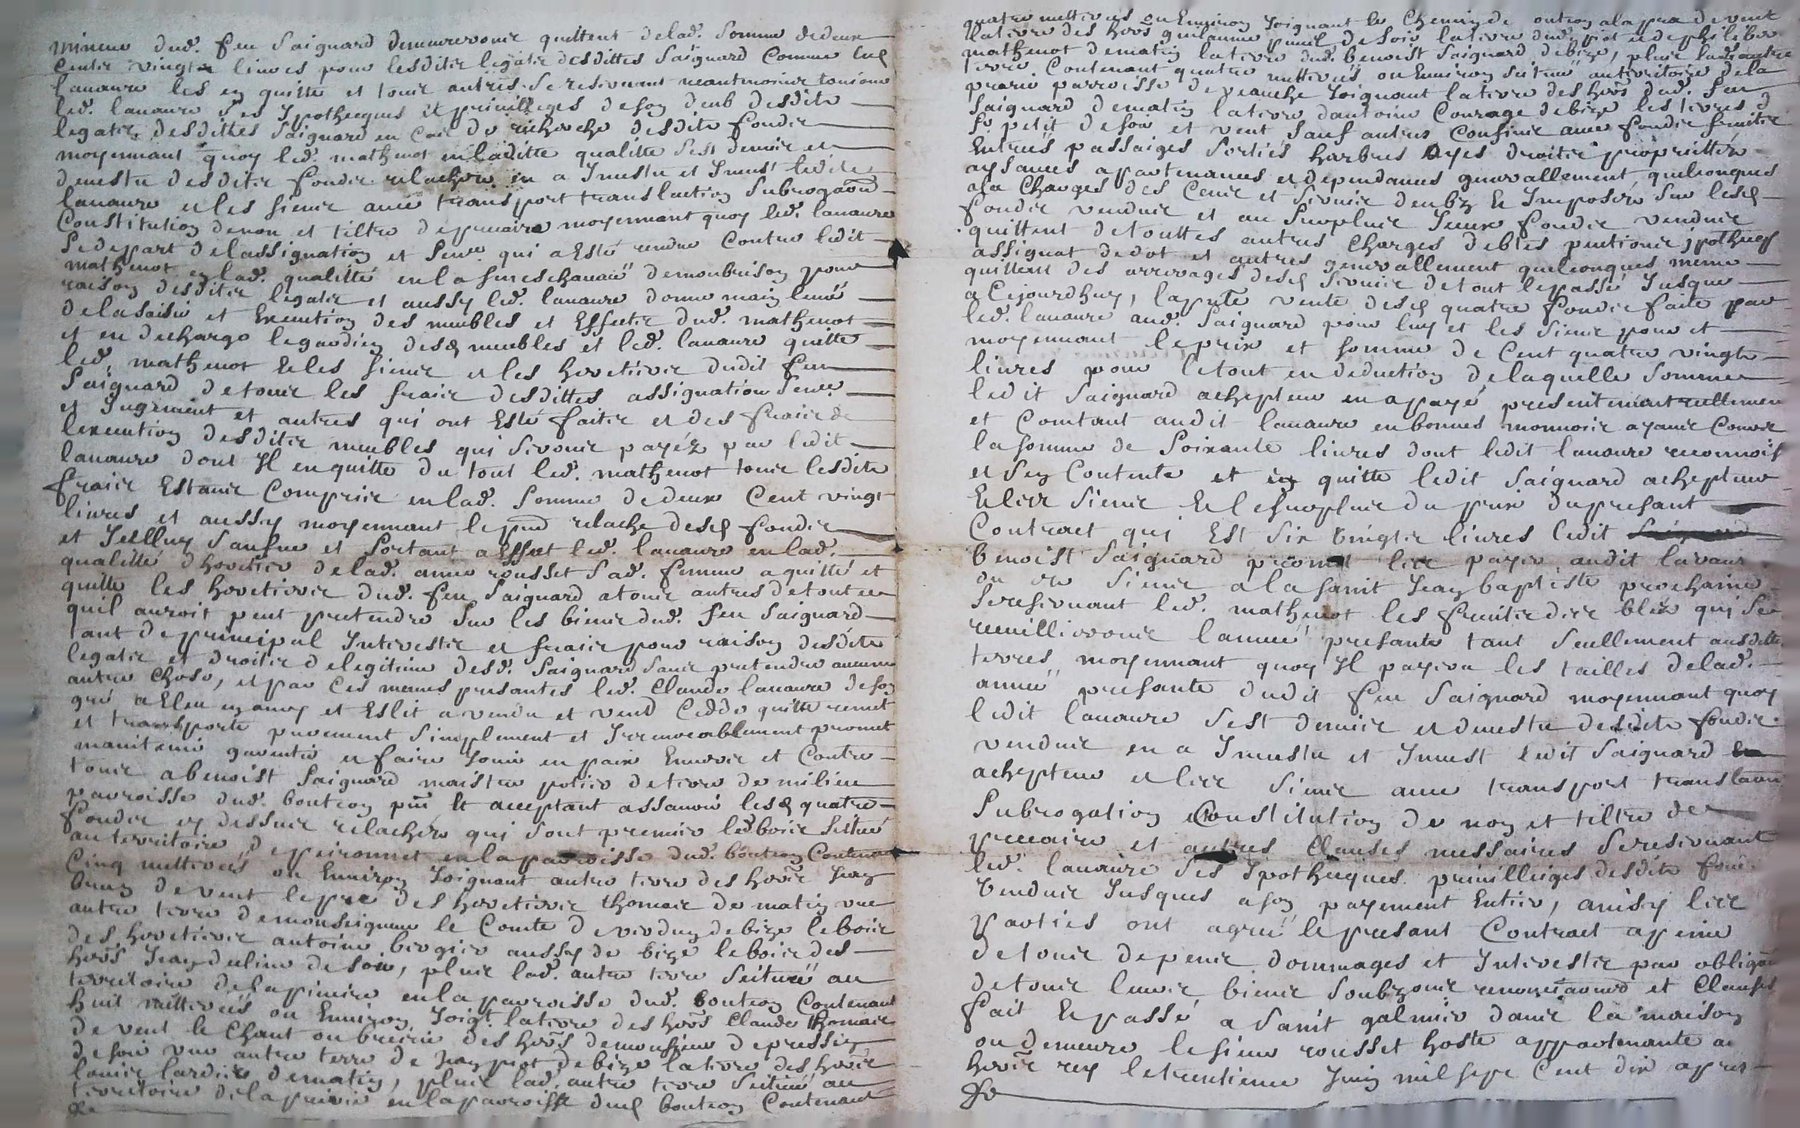 mineure dud. feu Saignard demeureront quittent delad. Somme dedeux
Cents vingts livres pour lesdits legats desdittes Saignard Comme led
lauaure les en quitte et tous autres Se reseruant neantmoins tousiours
led. lauaure Ses Ypothecques et priuilleges deson deub desdits
legats desdittes Saignard en Cas de recherche desdits fondz
moyennant quoy led. mathenot en laditte qualitte Sest demis et
deuestu desdits fondz relachés en a Inuestu et Inuest ledit
lauaure et les siens auec transport translaction Subrogaõn
Constitution denom et tiltre deprecaire moyennant quoy led. lauaure
Se depart delassignation et Senᶜᵉ qui a Esté rendue Contre ledit
mathenot en lad. qualitté en la senechaucée demontbrison pour
raison desdits legats et aussy led. lauaure donne main leuée
delasaisie et Execution des meubles et Effects dud. mathenot
et en decharge le gardien desd meubles et led. lauaure quitte
led. mathenot et les siens et les heretiers dudit feu
Saignard detous les frais desdittes assignation Senᶜᵉ
et Jugement et autres qui ont Esté faits et des frais de
lexecution desdits meubles qui Seront payéz par ledit
lauaure dont Il en quitte du tout led. mathenot tous lesdits
frais Estans Compris en lad. Somme dedeux Cent vingt
livres et aussy moyennant le pñt relache desd fondz
et Icelluy Sauf et Sortant a Effet led. lauaure en lad.
qualitté dheritier delad. anne rousset Sad. femme a quitté et
quitte les heretiers dud. feu Saignard atous autres detout ce
quil auroit peut pretendre Sur les biens dud. feu Saignard
tant deprincipal Interests et frais pour raison desdits
legats et droits delegitime desd. Saignard Sans pretendre aucune
autre Chose, et par Ces mesmes presantes led. Claude lauaure deson
gré a Eleu en amy et Eslit a vendu et vend Cedde quitte remet
et transporte purement Simplement et Irreuocablement promet
maintenir garentir et faire Jouir en paix Enuers et Contre
tous a benoist Saignard maistre potier deterre de milieu
parroisse dud. boutéon pñt et acceptant assauoir lesd quatre
fondz cy dessus relachés qui Sont premier led bois Scitué
au territoire depeironnet en la parroisse dud. boutéon Contenant
Cinq metterées ou Enuiron Joignant autre terre des hoirs Jean
brun de vent le pré des heretiers thomas de matin une
autre terre demonseigneur le Comte de verdun debize le bois
des heretiers antoine bergier aussy de bize le bois des
hoirs Jean dulieu desoir, plus lad. autre terre Scituée au
territoire delapiniere en la parroisse dud. boutéon Contenant
huit metterées ou Enuiron Joigt. la terre des hoirs Claude thomas
de vent le Chant ou breure des hoirs demonsieur depressieu
desoir une autre terre de Jean piot debize la terre des hoirs
louis lardier dematin, plus lad. autre terre Scituée au
territoire delaprerie en la parroisse dud boutéon Contenant
quatre metterées ou Enuiron Joignant le Chemin de boutéon alapra devent
laterre des hoirs guillaume desoir la terre dud. piot et dephiliber
mathenot dematin la terre dud. benoist Saignard debize, plus lad. autre
terre Contenant quatre metterées ou Enuiron Scituée auterritoire dela
prerie parroisse deveauche Joignant la terre des hoirs dud. feu
Saignard dematin la terre dantoine Courage debize les terres d
Sr petit desoir et vent Sauf autres Confins auec fondz fruits
Entrées passaiges Sorties harbres ayes droits proprietter
aysances appartenances et dependances generallement quelconques
ala Charges des Cens et Seruis deubz et Imposés Sur lesd
fondz vendus et au Surplus Iceux fondz vendus
quittent de touttes autres Charges debtes pentions ypotheques
assignat dedot et autres generallement quelconques mesme
quittent des arrerages desd Seruis de tout le passé Jusque
a Cejourdhuy, la pñte vente desd quatre fondz faite par
led. lauaure aud. Saignard pour luy et les siens pour et
moyennant le prix et Somme de Cent quatre vingts
livres pour le tout en deduction de laquelle Somme
ledit Saignard achepteur en a payé presentement reellement
et Comtant audit lauaure en bonnes monnois ayans Cours
la Somme de Soixante livres dont ledit lauaure reconnoit
et Sen Contente et en quitte ledit Saignard achepteur
Et les siens Et le surplus du prix dupresant
Contract qui Est Six vingts livres ledit
benoist Saignard promet les payer audit lauaure
ou es Siens a la saint Jean baptiste prochaine
Se reseruant led. mathenot les fruits des bles qui Se
recuilliront lannée presante tant Seullement ausdites
terres moyennant quoy Il payera les tailles delad.
année presante dudit feu Saignard moyennant quoy
ledit lauaure Sest demis et deuestu desdits fondz
vendus en a Inuestu et Inuest ledit Saignard
achepteur et les Siens auec transport translaõn
Subrogation Constitution de nom et tiltre de
precaire et autres Clauses necessaires Se reseruant
led. lauaure Ses Ypotheques priuilleiges desdits fondz
Vendus Jusques a son payement Entier, ainsy les
parties ont agreé le presant Contract a peine
de tous depens dommages et Interests par obligaõn
de tous leurs biens Soubzmis renonciaõns et Clauses
fait Et passé a Saint galmier dans la maison
ou demeure le sieur rousset hoste appartenante au
hoirs rey letrentieme Juin mil sept Cent dix apres